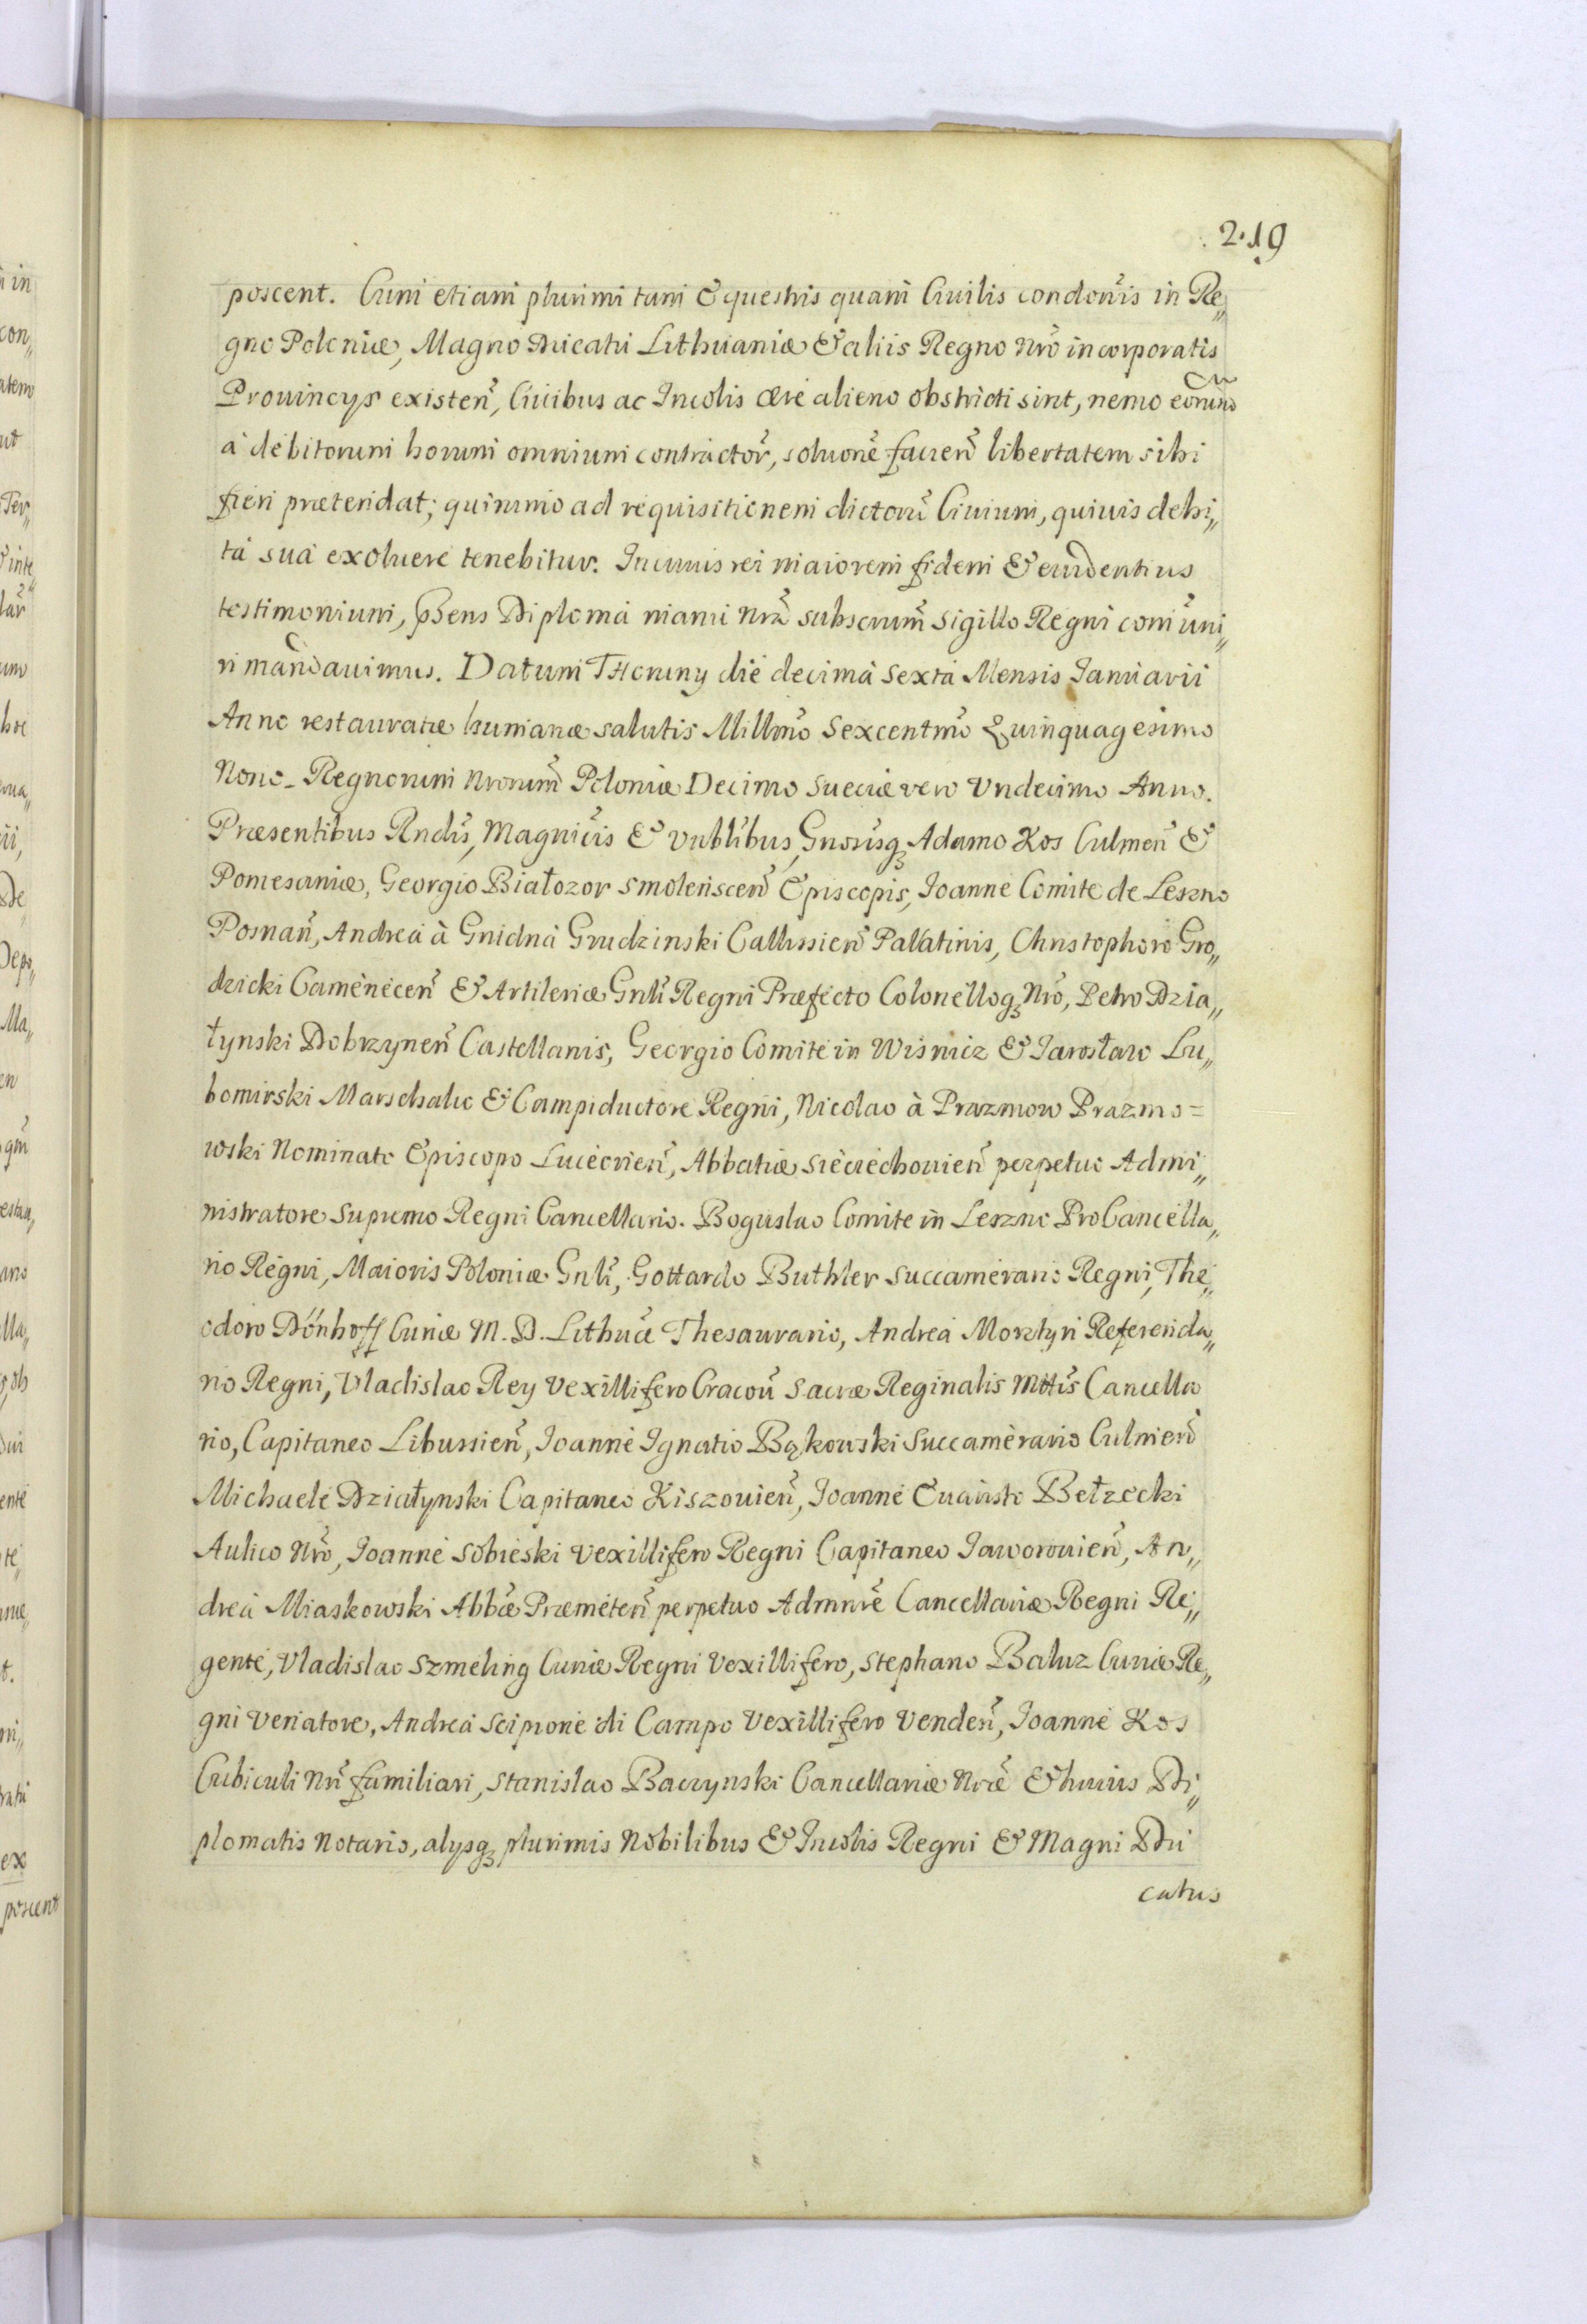 219
poscent. Cum etiam plurimi tam Equestris quam Ciuilis condonis in Re„
gno Poloniæ, Magno Ducatu Lithuaniæ & aliis Regno nro incorporatis
Prouincys existen, Ciuibus ac Incolis ære alieno obstricti sint, nemo eorum
à debitorum horum omnium contractor, solutione facien libertatem sibi
fieri prætendat; quinimo ad requisitionem dictoru Ciuium, quiuis debi„
ta sua exoluere tenebitur. In cuius rei maiorem fidem & euidentius
testimonium, pñs Diploma manu nra subscrium Sigillo Regni comuni„
ri mandauimus. Datum Thoruny die decima Sexta Mensis Januarii
Anno restauratæ humanæ salutis Millmo Sexcentmo Quinquagesimo
Nono. Regnorum Nrorum Poloniæ Decimo Sueciæ vero Vndecimo Anno.
Præsentibus Rndis, Magnicis & Vnblibus, Gnosusq3 Adamo Kos Culmen &
Pomesaniæ, Georgio Białozor Smolenscen Episcopis, Joanne Comite de Leszno
Posnan, Andrea à Gnidna Grudzinski Callissien Palatinis, Christophoro Gro„
dzicki Camenecen & Artileriæ Gnli Regni Præfecto Colonelloq3 Nro, Petro Dzia„
łynski Dobrzynen Castellanis, Georgio Comite in Wisnicz & Jarosław Lu„
bomirski Marschalco & Campiductore Regni, Nicolao à Prazmow Prazmo=
wski Nominato Episcopo Luceorien, Abbatiæ Sieciechouien perpetuo Admi„
nistratore Supremo Regni Cancellario. Boguslao Comite in Leszno ProCancella„
rio Regni, Maioris Poloniæ Gnli, Gottardo Buthler Succamerario Regni, The„
odoro Dönhoff Curiæ M. D. Lithuæ Thesaurario, Andrea Morstyn Referenda„
rio Regni, Vladislao Rey Vexillifero Cracou Sacræ Reginalis Mttis Cancella
rio, Capitaneo Libussien, Joanne Ignatio Bąkowski Succamerario Culmen
Michaele Działynski Capitaneo Kiszouien, Joanne Euaristo Bełzecki
Aulico Nro, Joanne Sobieski Vexillifero Regni Capitaneo Jaworouien, An„
drea Miaskowski Abbæ Præmeten perpetuo Admnre Cancellariæ Regni Re„
gente, Vladislao Szmeling Curiæ Regni Vexillifero, Stephano Baluz Curiæ Re„
gni Venatore, Andrea Scipione di Campo Vexillifero Venden, Joanne Kos
Cubiculi Nri familiari, Stanislao Baczynski Cancellariæ Nræ & huius Di„
plomatis Notario, alysq3 plurimis Nobilibus & Incolis Regni & Magni Du
catus